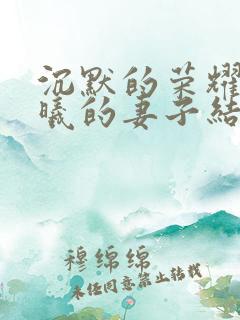 沉默的荣耀
曦的妻子结
穆绵绵
未经同意禁止转载